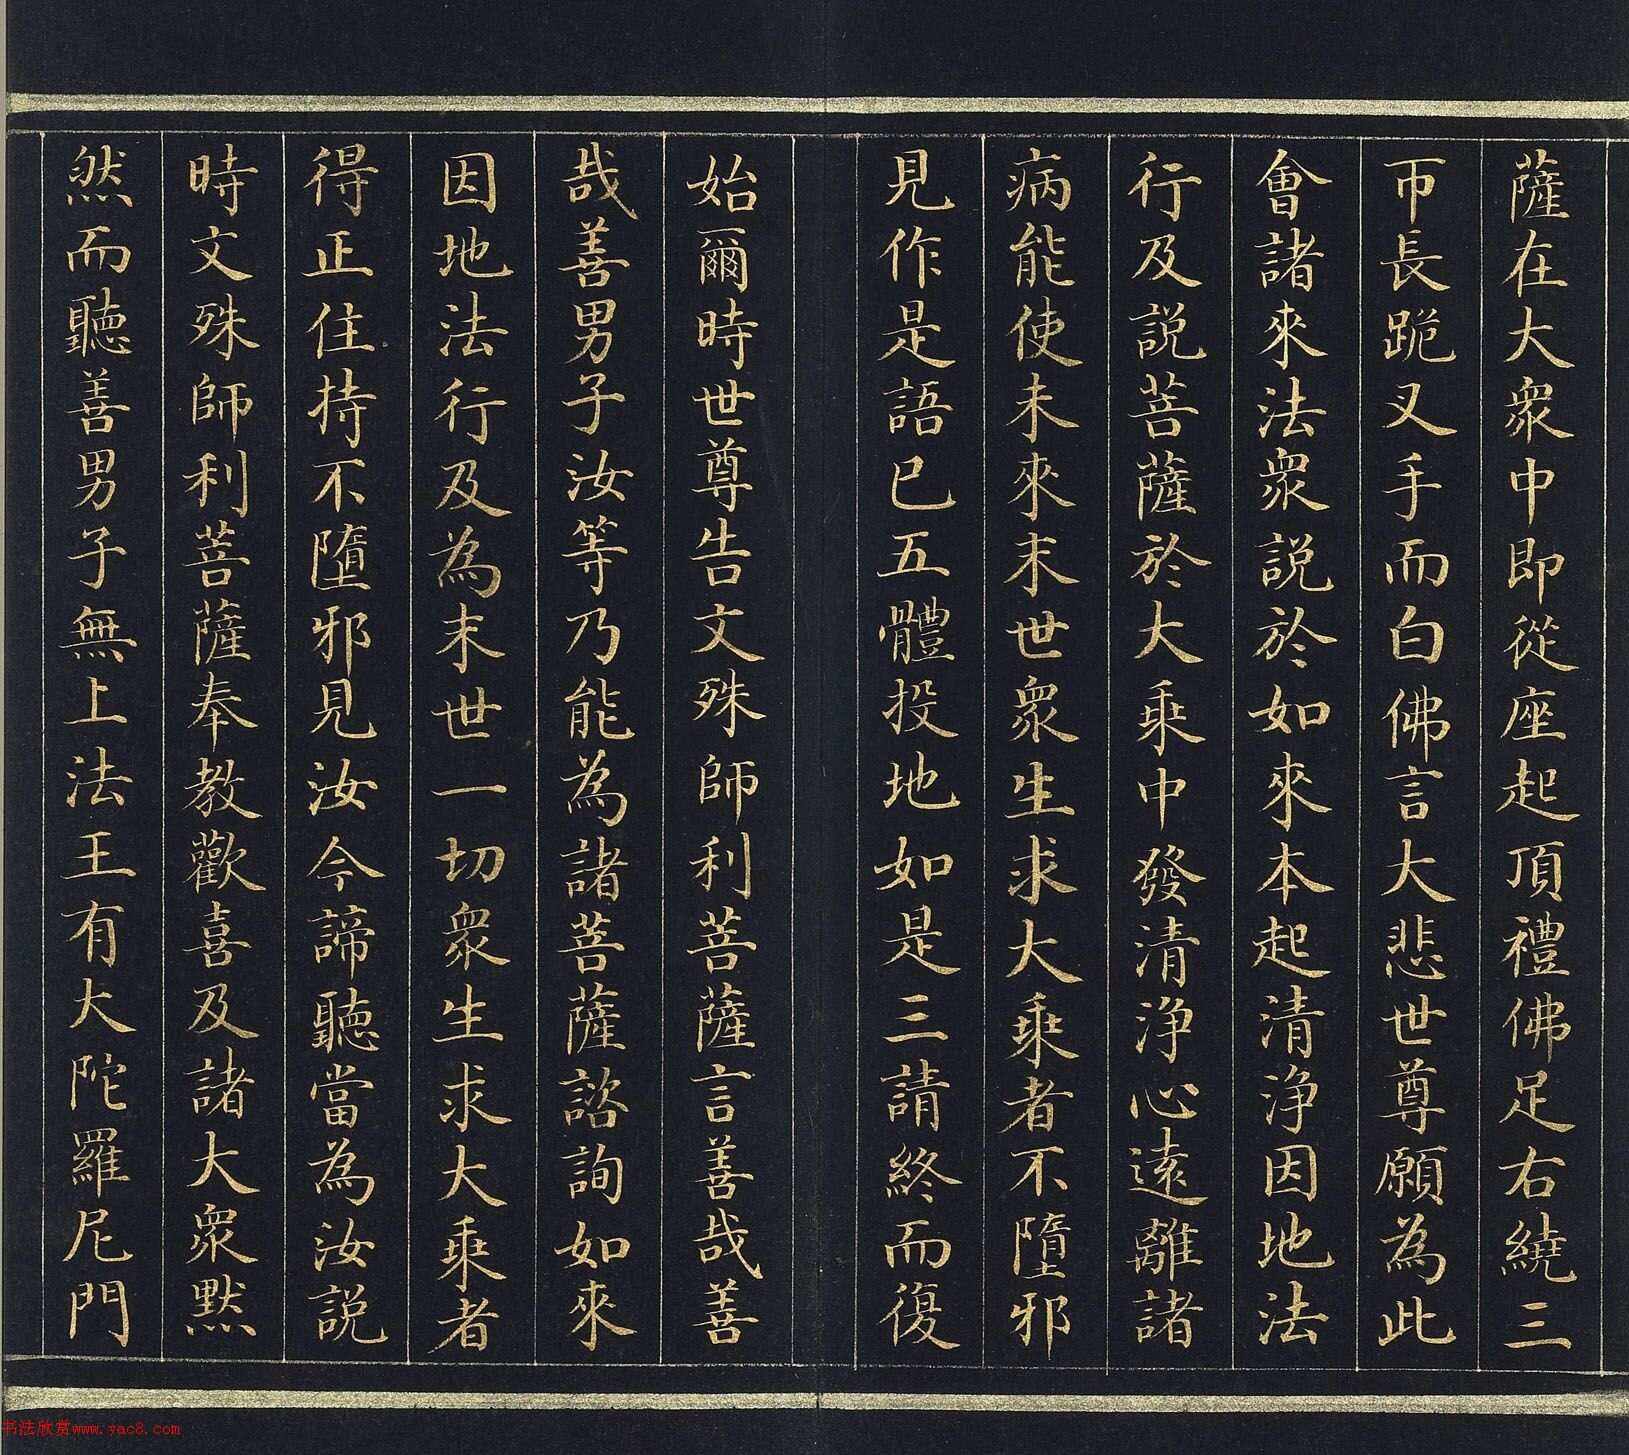 薩在大眾中即從座起頂禮佛足右繞三
帀長跪叉手而白佛言大悲世尊願為此
會諸來法眾說於如來本起清淨因地法
行及說菩薩於大乘中發清淨心遠離諸
病能使未來末世眾生求大乘者不墮邪
見作是語已五體投地如是三請終而復
始爾時世尊告文殊師利菩薩言善哉善
哉善男子汝等乃能為諸菩薩諮詢如來
因地法行及為末世一切眾生求大乘者
得正住持不墮邪見汝今諦聽當為汝說
時文殊師利菩薩奉教歡喜及諸大眾默
然而聽善男子無上法王有大陀羅尼門
书法欣赏www.yac8.com